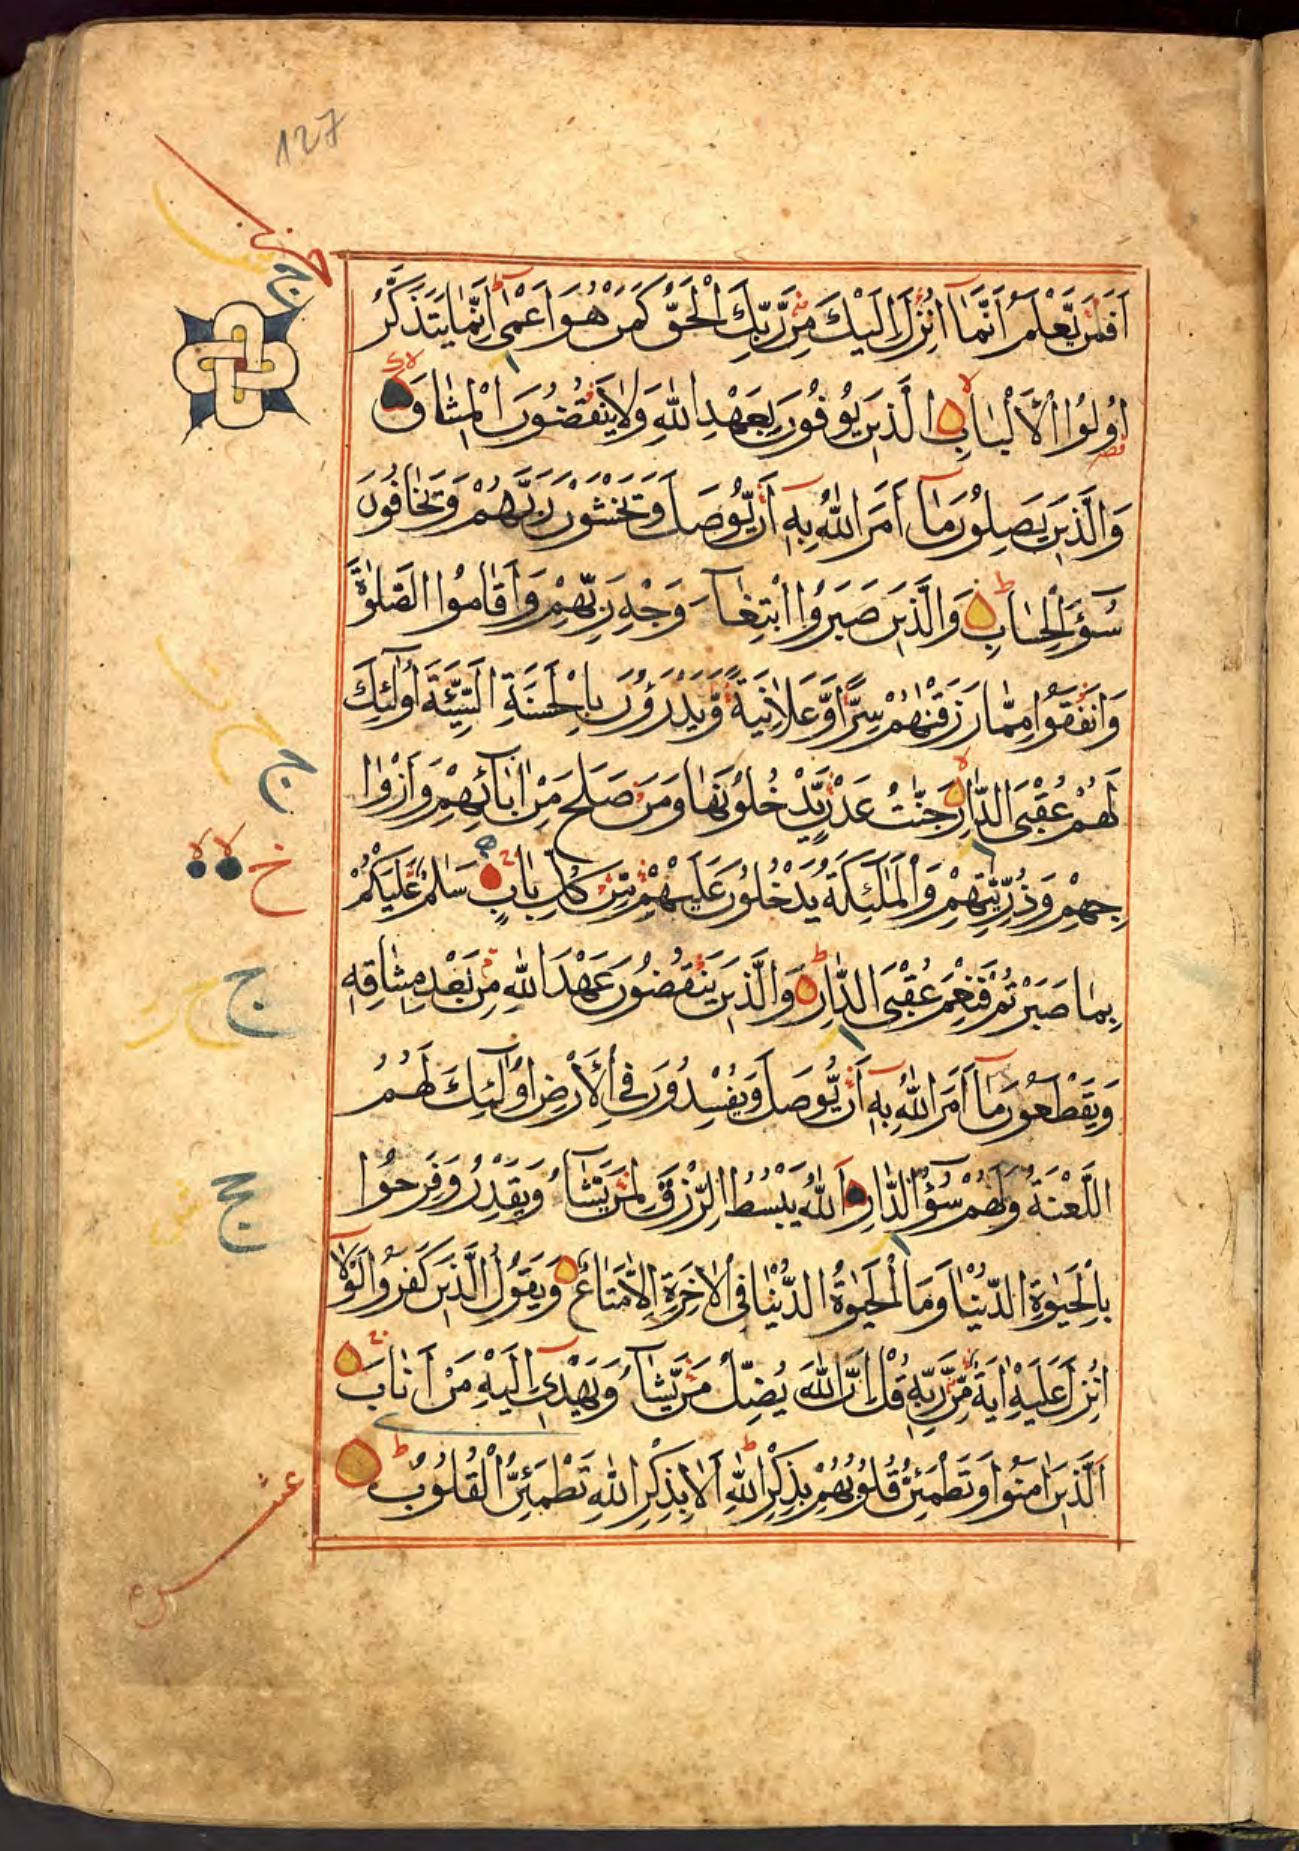 127
حزب
اَفَمَنْ يَّعْلَمُ اَنَّمَآ اُنْزِلَ اِلَيْكَ مِنْ رَّبِّكَ الْحَقُّ كَمَنْ هُوَ اَعْمٰى اِنَّمَا يَتَذَكَّرُ
اُولُوا الْاَلْبَابِ الَّذِينَ يُوْفُونَ بِعَهْدِ اللّٰهِ وَلَا يَنْقُضُونَ الْمِيثَاقَ
وَالَّذِينَ يَصِلُونَ مَآ اَمَرَ اللّٰهُ بِهٓ اَنْ يُّوْصَلَ وَيَخْشَوْنَ رَبَّهُمْ وَيَخَافُونَ
سُوٓءَ الْحِسَابِ وَالَّذِينَ صَبَرُوا ابْتِغَآءَ وَجْهِ رَبِّهِمْ وَاَقَامُوا الصَّلٰوةَ
وَاَنْفَقُوا مِمَّا رَزَقْنٰهُمْ سِرًّا وَّعَلَانِيَةً وَّيَدْرَؤُنَ بِالْحَسَنَةِ السَّيِّئَةَ اُولٰٓئِكَ
لَهُمْ عُقْبَى الدَّارِ جَنّٰتُ عَدْنٍ يَّدْخُلُونَهَا وَمَنْ صَلَحَ مِنْ اٰبَآئِهِمْ وَاَزْوَا
جِهِمْ وَذُرِّيّٰتِهِمْ وَالْمَلٰٓئِكَةُ يَدْخُلُونَ عَلَيْهِمْ مِّنْ كُلِّ بَابٍ سَلٰمٌ عَلَيْكُمْ
بِمَا صَبَرْتُمْ فَنِعْمَ عُقْبَى الدَّارِ وَالَّذِينَ يَنْقُضُونَ عَهْدَ اللّٰهِ مِنْ بَعْدِ مِيثَاقِهِ
وَيَقْطَعُونَ مَآ اَمَرَ اللّٰهُ بِهٓ اَنْ يُّوْصَلَ وَيُفْسِدُونَ فِي الْاَرْضِ اُولٰٓئِكَ لَهُمُ
اللَّعْنَةُ وَلَهُمْ سُوٓءُ الدَّارِ اَللّٰهُ يَبْسُطُ الرِّزْقَ لِمَنْ يَّشَآءُ وَيَقْدِرُ وَفَرِحُوا
بِالْحَيٰوةِ الدُّنْيَا وَمَا الْحَيٰوةُ الدُّنْيَا فِي الْاٰخِرَةِ اِلَّا مَتَاعٌ وَيَقُولُ الَّذِينَ كَفَرُوا لَوْلَآ
اُنْزِلَ عَلَيْهِ اٰيَةٌ مِّنْ رَّبِّهِ قُلْ اِنَّ اللّٰهَ يُضِلُّ مَنْ يَّشَآءُ وَيَهْدِىٓ اِلَيْهِ مَنْ اَنَابَ
اَلَّذِينَ اٰمَنُوا وَتَطْمَئِنُّ قُلُوبُهُمْ بِذِكْرِ اللّٰهِ اَلَا بِذِكْرِ اللّٰهِ تَطْمَئِنُّ الْقُلُوبُ
عشر